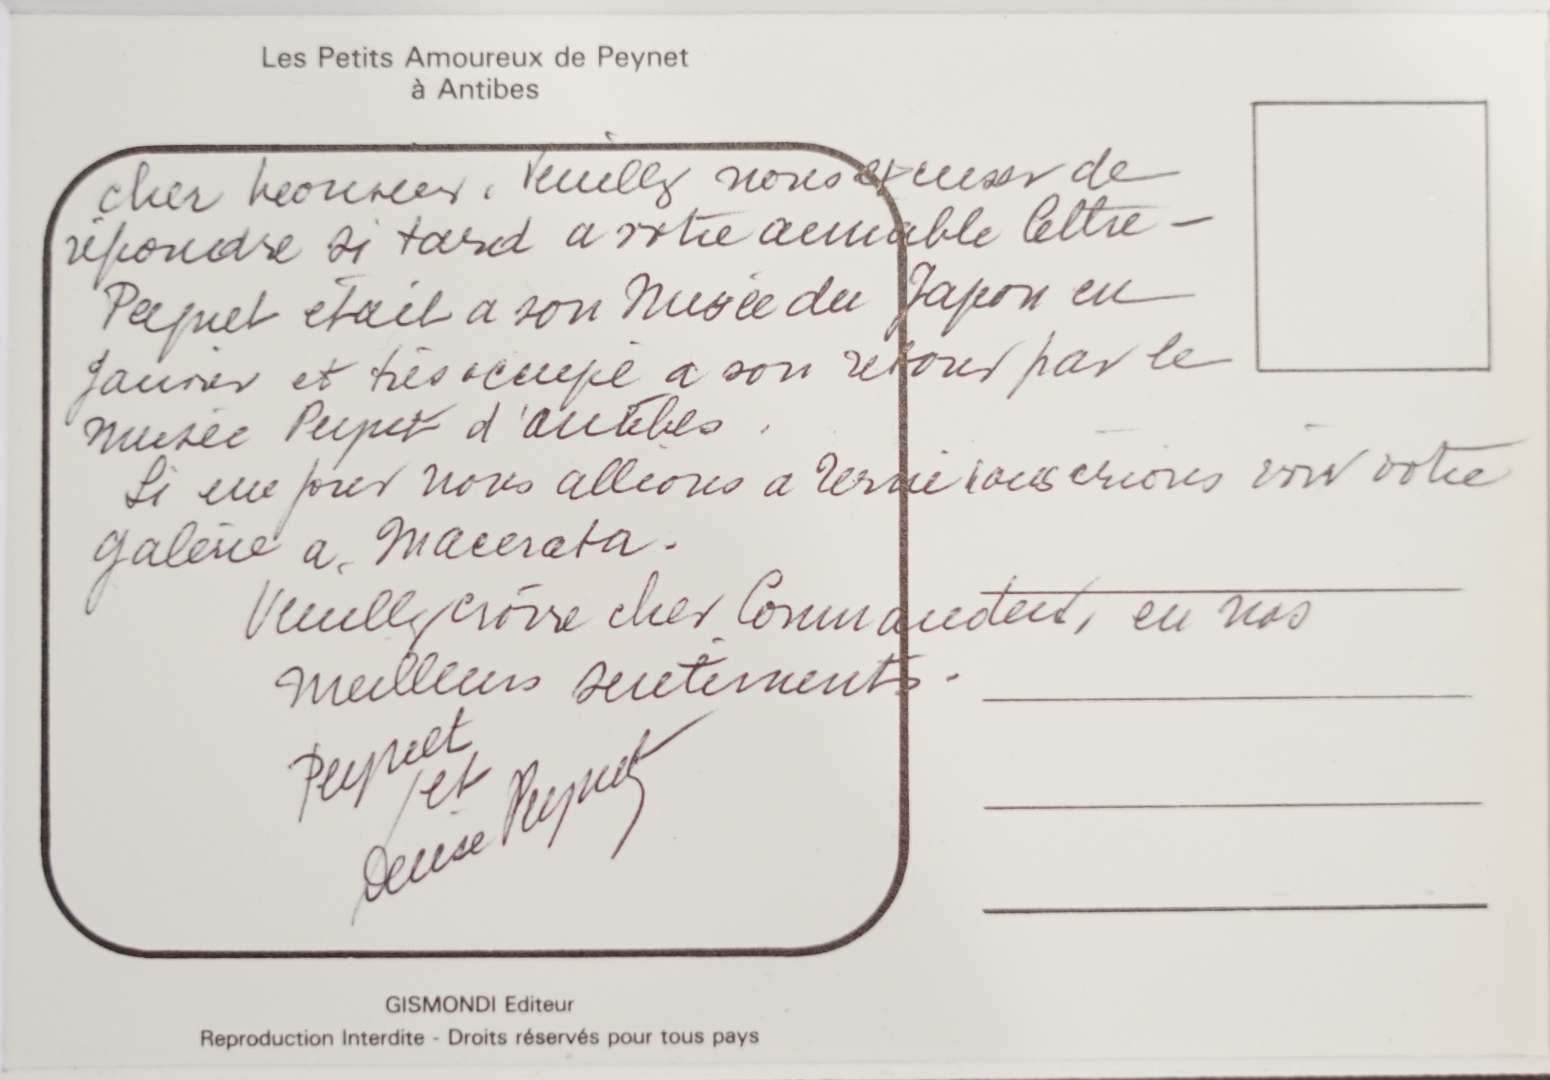 Les Petits Amoureux de Peynet
à Antibes
cher Monsieur. Veuillez nous excuser de
répondre si tard a votre aimable lettre -
Peynet était a son Musée du Japon en
Janvier et très occupé a son retour par le
Musée Peynet d'Antibes.
Si un jour nous allions a voir votre
galerie a Macerata.
Veuillez croire cher Commandeur, en nos
meilleurs sentiments.
Peynet
et
Denise Peynet
GISMONDI Editeur
Reproduction Interdite - Droits réservés pour tous pays